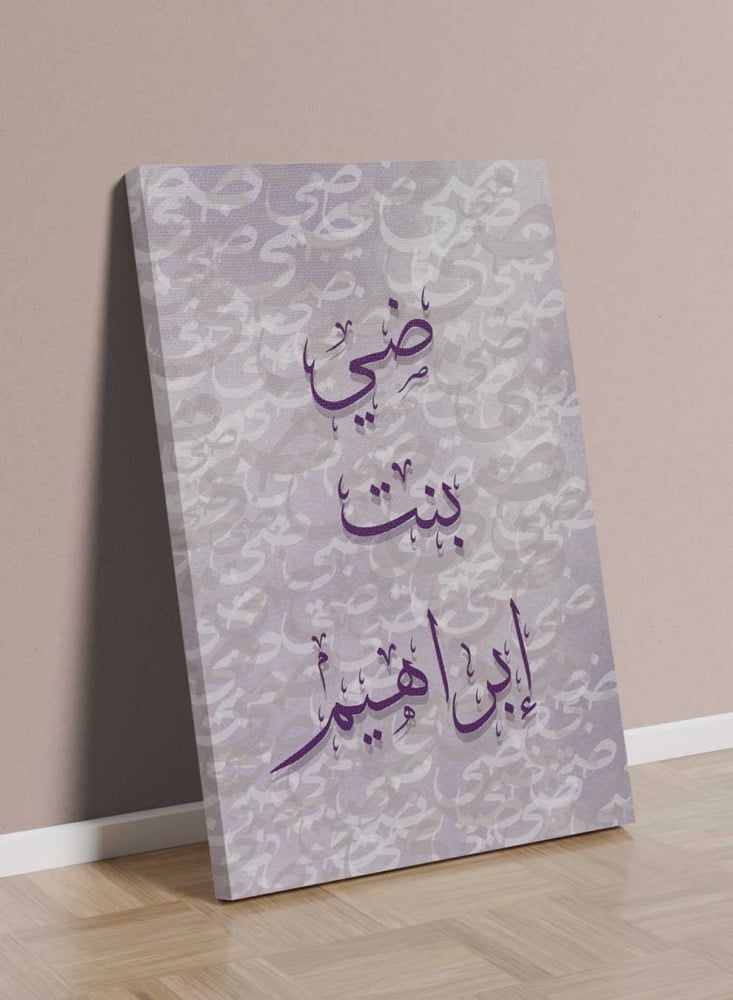 ضي
بنت
إبراهيم